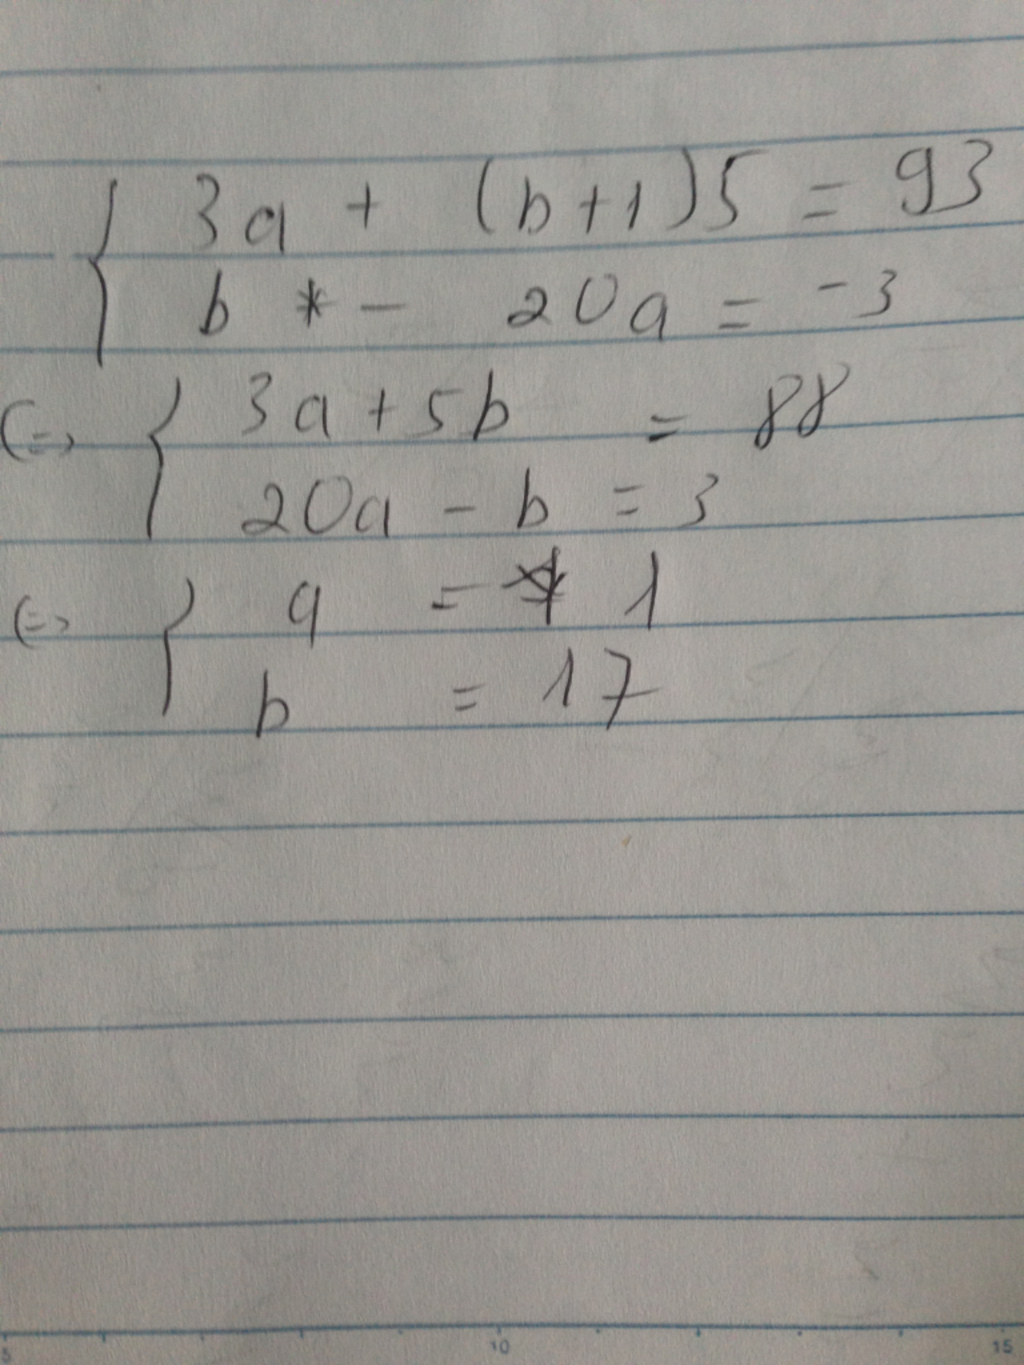 { 3a + (b+1)5 = 93
b * - 20a = -3
(=) { 3a + 5b = 88
20a - b = 3
(=) { a = 1
b = 17
10
15